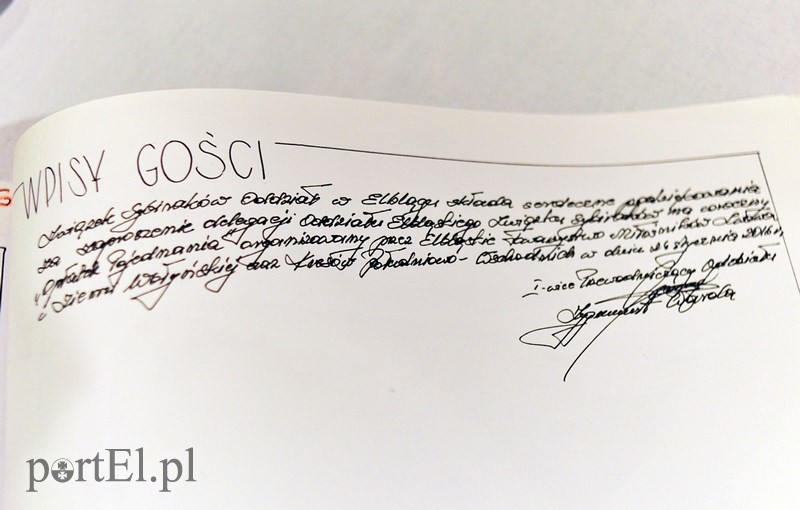 WPISY GOŚCI
Związek Sybiraków Oddział w Elblągu składa serdeczne podziękowania
za zaproszenie delegacji Oddziału Elbląskiego Związku Sybiraków na coroczny
"Opłatek Pojednania" organizowany przez Elbląskie Towarzystwo Miłośników Lwowa
i Ziemi Wołyńskiej oraz Kresów Południowo-Wschodnich w dniu 26 stycznia 2016 r.
I-wice Przewodniczący Oddziału
Zygmunt
portEl.pl